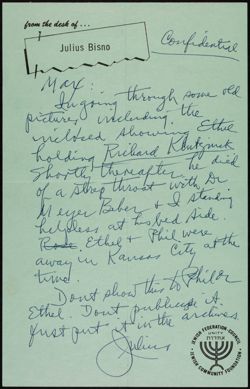 from the desk of...
Julius Bisno
Confidential
Max:
In going through some old
pictures including the
inclosed showing Ethel
holding Richard Klutznick
Shortly thereafter he died
of a strep throat with Dr
Meyer Beber & I standing
helpless at his bed side.
Ethel & Phil were
away in Kansas City at the
time.
Dont show this to Phil or
Ethel. Dont publicize it.
Just put it in the archives
Julius
JEWISH FEDERATION COUNCIL
JEWISH COMMUNITY FOUNDATION